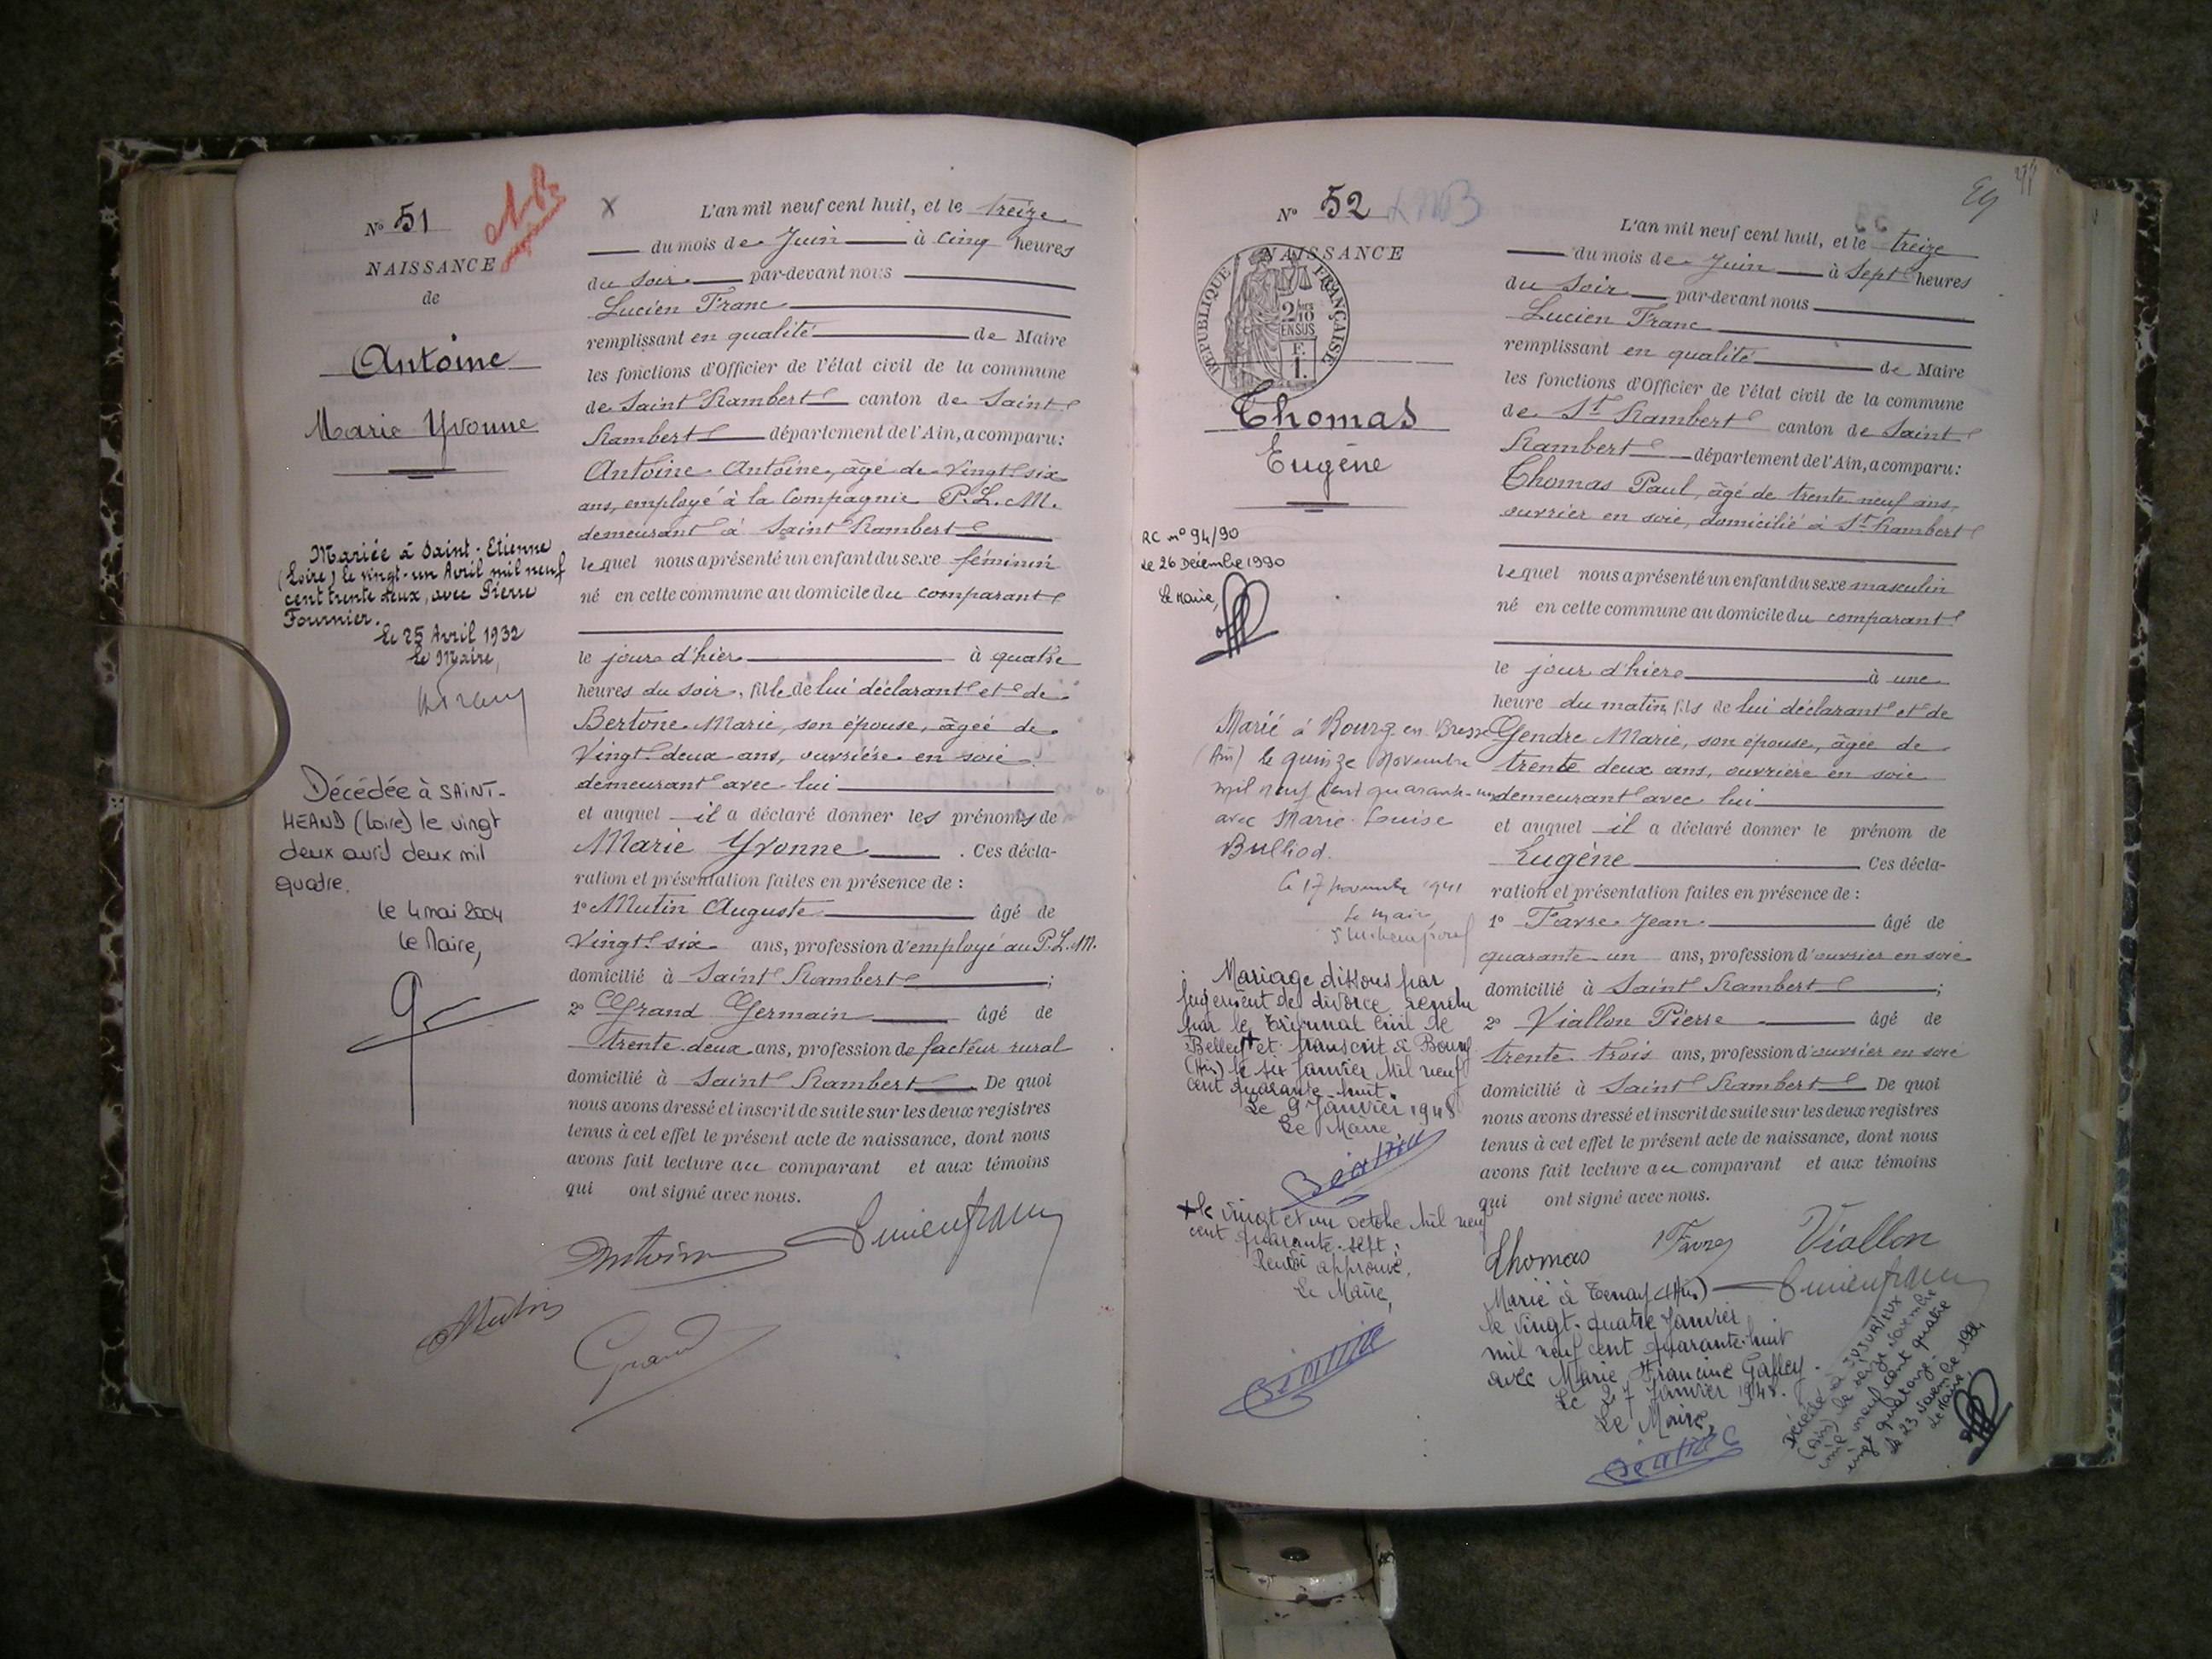 N° 51
NAISSANCE
de
Antoine
Marie Yvonne
Mariée à Saint-Etienne
(Loire) le vingt-un Avril mil neuf
cent trente deux, avec Pierre
Fournier.
le 25 Avril 1932
Le Maire,
Décédée à SAINT-
HEAND (Loire) le vingt
deux avril deux mil
quatre.
le 4 mai 2004
Le Maire,
X
L'an mil neuf cent huit, et le treize
du mois de Juin à cinq heures
du soir par-devant nous
Lucien Franc
remplissant en qualité de Maire
les fonctions d'Officier de l'état civil de la commune
de Saint Rambert canton de Saint
Rambert département de l'Ain, a comparu:
Antoine Antoine, âgé de vingt six
ans, employé à la Compagnie P.L.M.
demeurant à Saint Rambert
lequel nous a présenté un enfant du sexe féminin
né en cette commune au domicile du comparant
le jour d'hier à quatre
heures du soir, fille de lui déclarant et de
Bertone Marie, son épouse, âgée de
Vingt deux ans, ouvrière en soie
demeurant avec lui
et auquel il a déclaré donner les prénoms de
Marie Yvonne . Ces décla-
ration et présentation faites en présence de :
1° Mutin Auguste âgé de
Vingt six ans, profession d'employé au P.L.M.
domicilié à Saint Rambert ;
2° Grand Germain âgé de
trente deux ans, profession de facteur rural
domicilié à Saint Rambert. De quoi
nous avons dressé et inscrit de suite sur les deux registres
tenus à cet effet le présent acte de naissance, dont nous
avons fait lecture au comparant et aux témoins
qui ont signé avec nous.
Antoine Lucien Franc
Mutin
Grand
N° 52
NAISSANCE
REPUBLIQUE FRANÇAISE
2/10
EN SUS
F.
1.
Thomas
Eugène
RC n° 94/90
le 26 Décembre 1990
Le Maire,
Marié à Bourg en Bresse
(Ain) le quinze Novembre
mil neuf cent quarante-un
avec Marie-Louise
Bulliod.
Le 17 Novembre 1941
Le Maire
Mariage dissous par
jugement de divorce rendu
par le Tribunal Civil de
Belley + et transcrit à Bourg
(Ain) le six Janvier Mil neuf
cent quarante-huit.
Le 9 Janvier 1948
Le Maire
+ le vingt et un octobre Mil neuf
cent quarante-sept.
Renvoi approuvé.
Le Maire,
L'an mil neuf cent huit, et le treize
du mois de Juin à Sept heures
du Soir par-devant nous
Lucien Franc
remplissant en qualité de Maire
les fonctions d'Officier de l'état civil de la commune
de St Rambert canton de Saint
Rambert département de l'Ain, a comparu:
Thomas Paul, âgé de trente neuf ans,
ouvrier en soie, domicilié à St Rambert
lequel nous a présenté un enfant du sexe masculin
né en cette commune au domicile du comparant
le jour d'hier à une
heure du matin, fils de lui déclarant et de
Gendre Marie, son épouse, âgée de
trente deux ans, ouvrière en soie
demeurant avec lui
et auquel il a déclaré donner le prénom de
Eugène Ces décla-
ration et présentation faites en présence de :
1° Favre Jean âgé de
quarante-un ans, profession d'ouvrier en soie
domicilié à Saint Rambert ;
2° Viallon Pierre âgé de
trente trois ans, profession d'ouvrier en soie
domicilié à Saint Rambert De quoi
nous avons dressé et inscrit de suite sur les deux registres
tenus à cet effet le présent acte de naissance, dont nous
avons fait lecture au comparant et aux témoins
qui ont signé avec nous.
Thomas Favre Viallon
Lucien Franc
Marié à Tenay (Ain)
le vingt-quatre Janvier
mil neuf cent quarante-huit
avec Marie Francine Gaffey.
Le 27 Janvier 1948.
Le Maire,
Décédé à JUJURIEUX
(Ain) le seize Novembre
mil neuf cent quatre
vingt quatorze.
le 23 Novembre 1994
Le Maire,